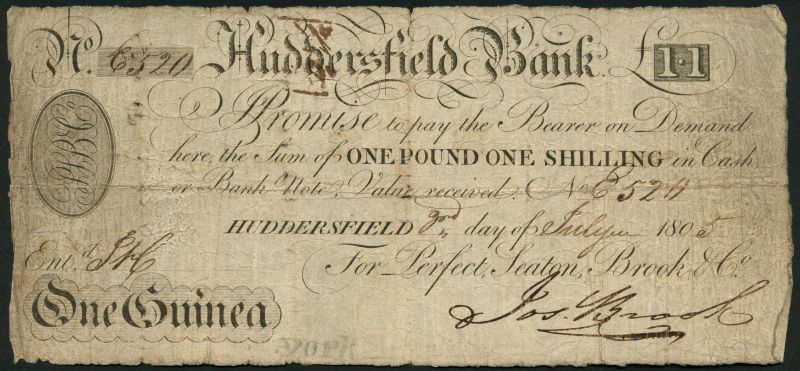 No. C520 Huddersfield Bank. £1·1
I Promise to pay the Bearer on Demand
here, the Sum of ONE POUND ONE SHILLING in Cash
or Bank Note, Value received. No C520
HUDDERSFIELD 3rd day of July 1805
Ent.d
For Perfect, Seaton, Brook & Co.
One Guinea
Jos. Brook